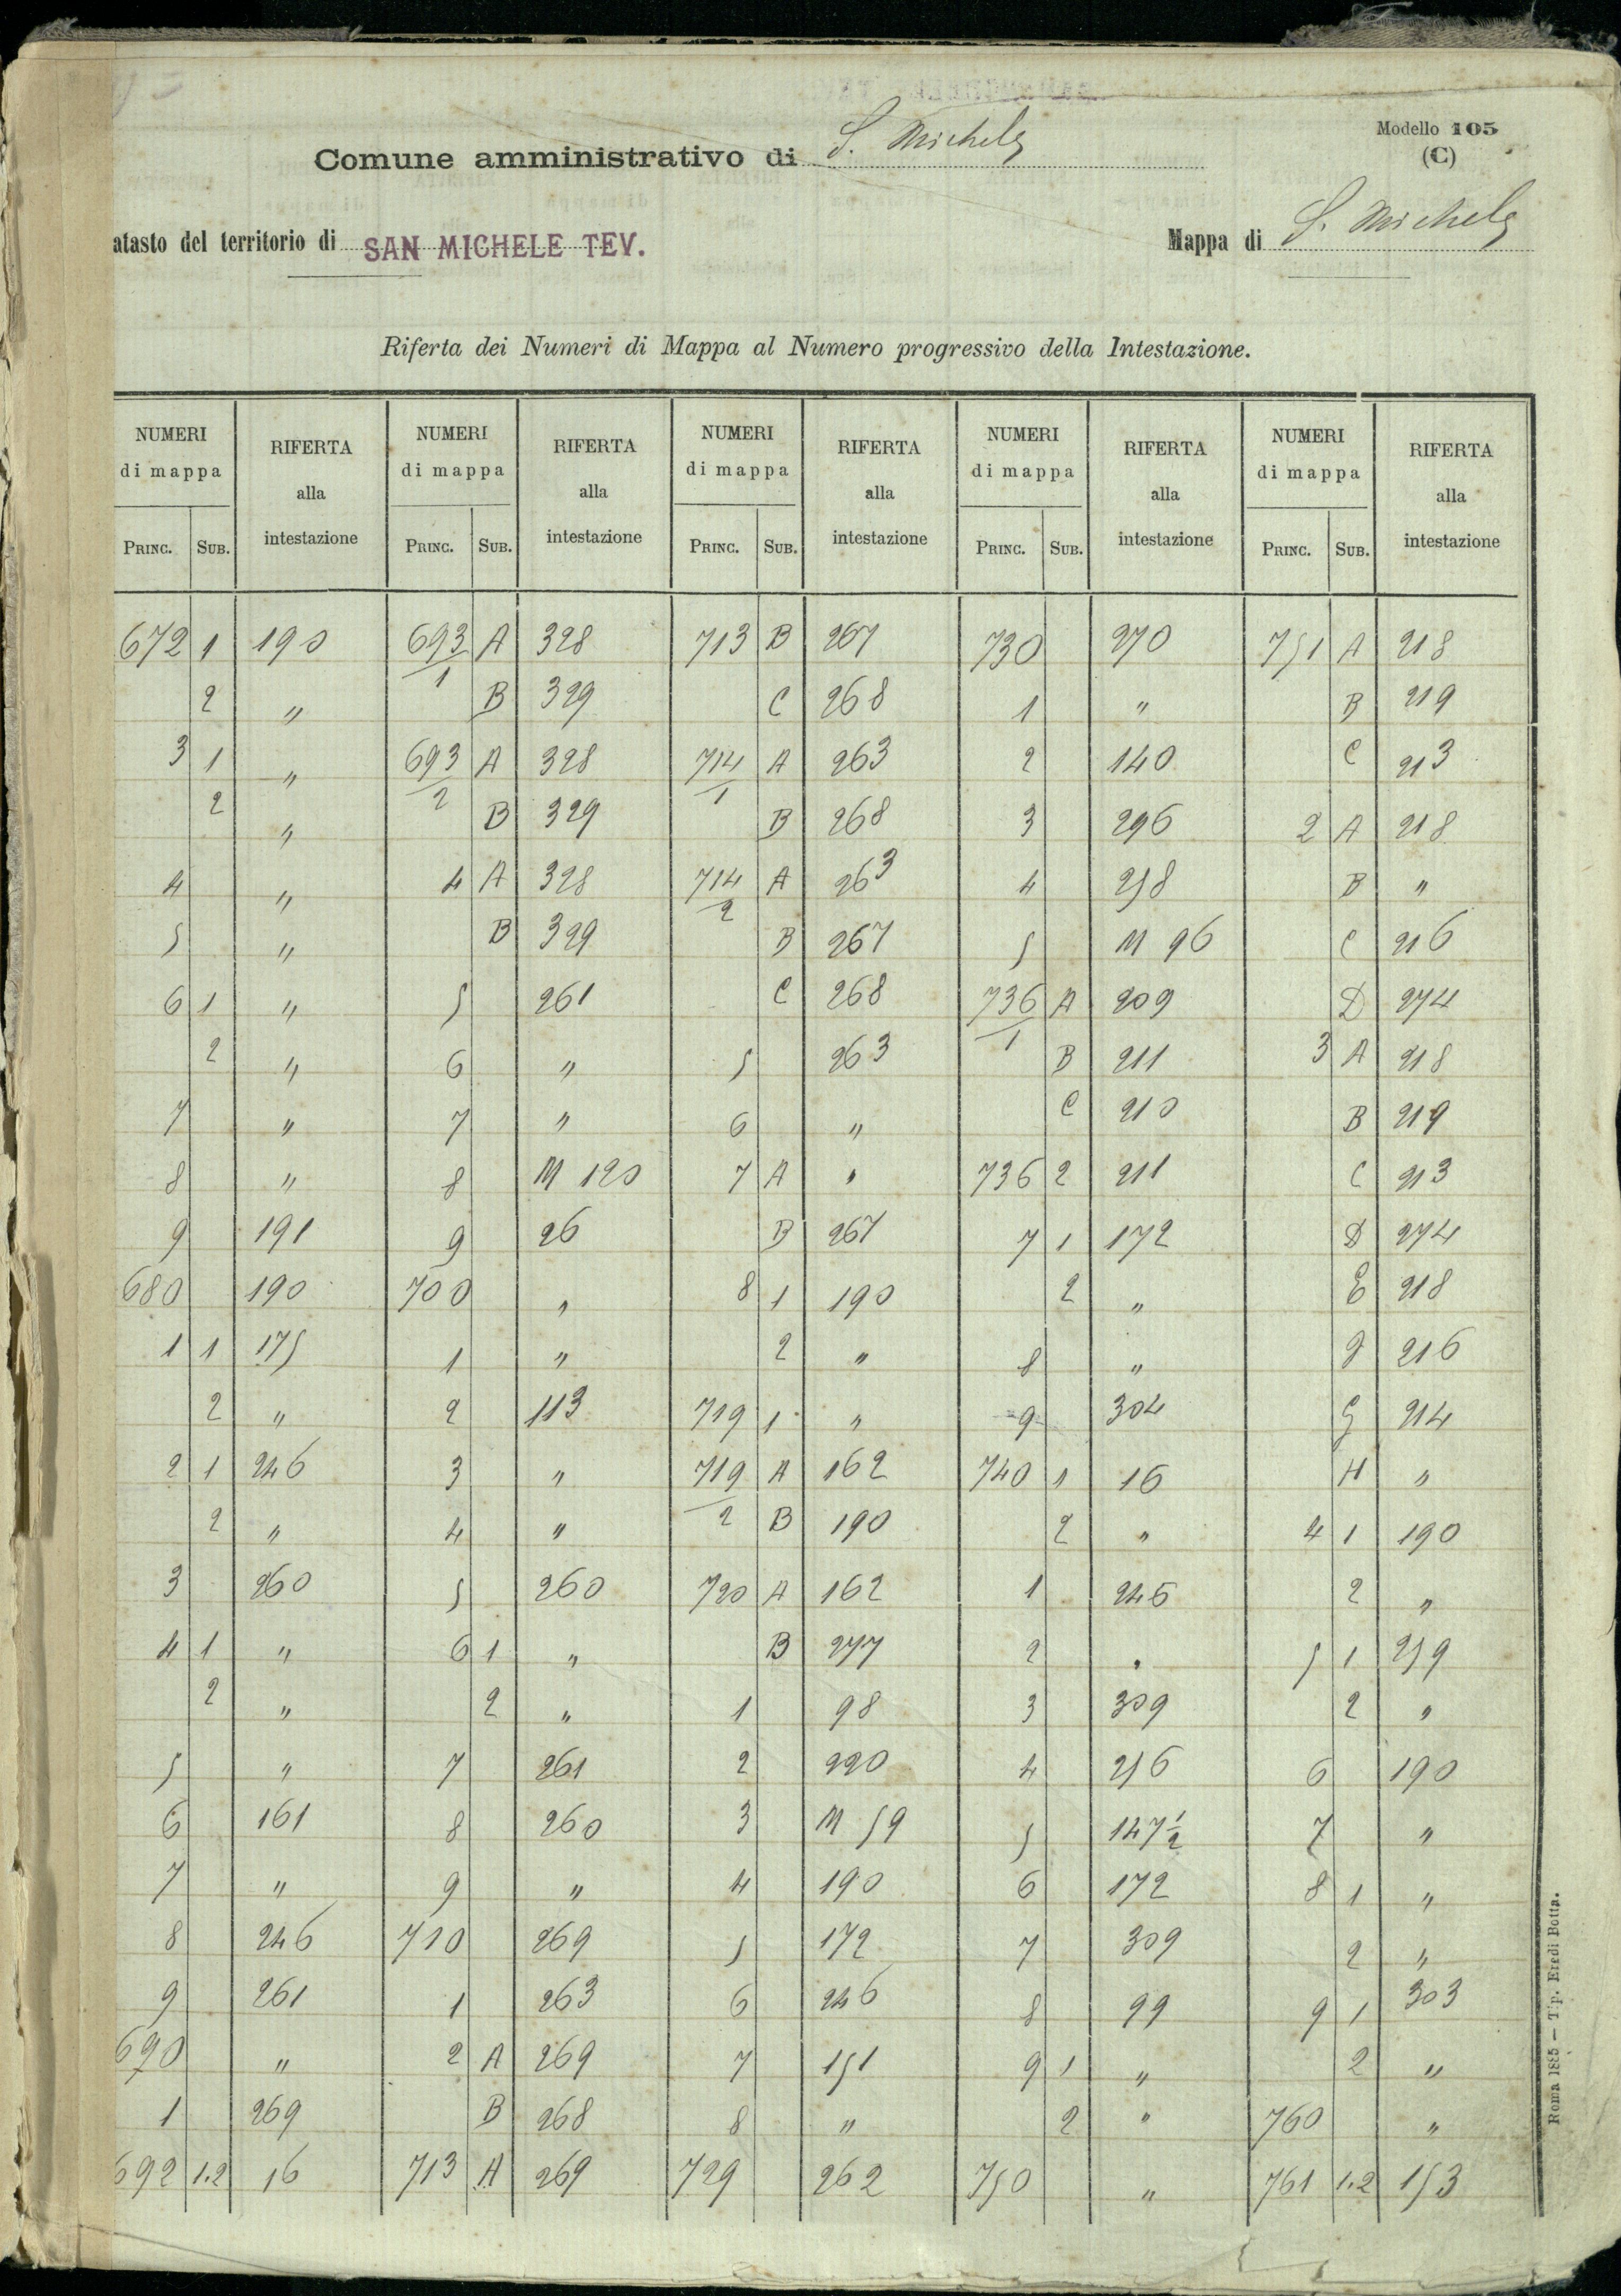 Modello 105
(C)
Comune amministrativo di S. Michele
atasto del territorio di SAN MICHELE TEV. Mappa di S. Michele
Riferta dei Numeri di Mappa al Numero progressivo della Intestazione.
NUMERI RIFERTA NUMERI RIFERTA NUMERI RIFERTA NUMERI RIFERTA NUMERI RIFERTA
di mappa alla di mappa alla di mappa alla di mappa alla di mappa alla
PRINC. SUB. intestazione PRINC. SUB. intestazione PRINC. SUB. intestazione PRINC. SUB. intestazione PRINC. SUB. intestazione
672 1 190 693/1 A 328 713 B 267 730 270 751 A 218
2 " B 329 C 268 1 " B 219
3 1 " 693/2 A 328 714/1 A 263 2 140 C 213
2 " B 329 B 268 3 296 2 A 218
4 " 4 A 328 714/2 A 263 4 258 B "
5 " B 329 B 267 5 M 96 C 216
6 1 " 5 261 C 268 736/1 A 209 D 274
2 " 6 " 5 263 B 211 3 A 218
7 " 7 " 6 " C 210 B 219
8 " 8 M 120 7 A " 736 2 211 C 213
9 191 9 26 B 267 7 1 172 D 274
680 190 700 " 8 1 190 2 " E 218
1 1 175 1 " 2 " 8 " 216
2 " 2 113 719 1 " 9 304 G 214
2 1 246 3 " 719/2 A 162 740 1 16 H "
2 " 4 " B 190 2 " 4 1 190
3 260 5 260 720 A 162 1 246 2 "
4 1 " 6 1 " B 277 2 " 5 1 259
2 " 2 " 1 98 3 309 2 "
5 " 7 261 2 220 4 256 6 190
6 161 8 260 3 M 59 5 147 1/2 7 "
7 " 9 " 4 190 6 172 8 1 "
8 246 710 269 5 172 7 309 2 "
9 261 1 263 6 246 8 99 9 1 303
690 " 2 A 269 7 151 9 1 " 2 "
1 269 B 268 8 " 2 " 760 "
692 1.2 16 713 A 269 729 262 750 " 761 1.2 153
Roma 1885 — Tip. Eredi Botta.